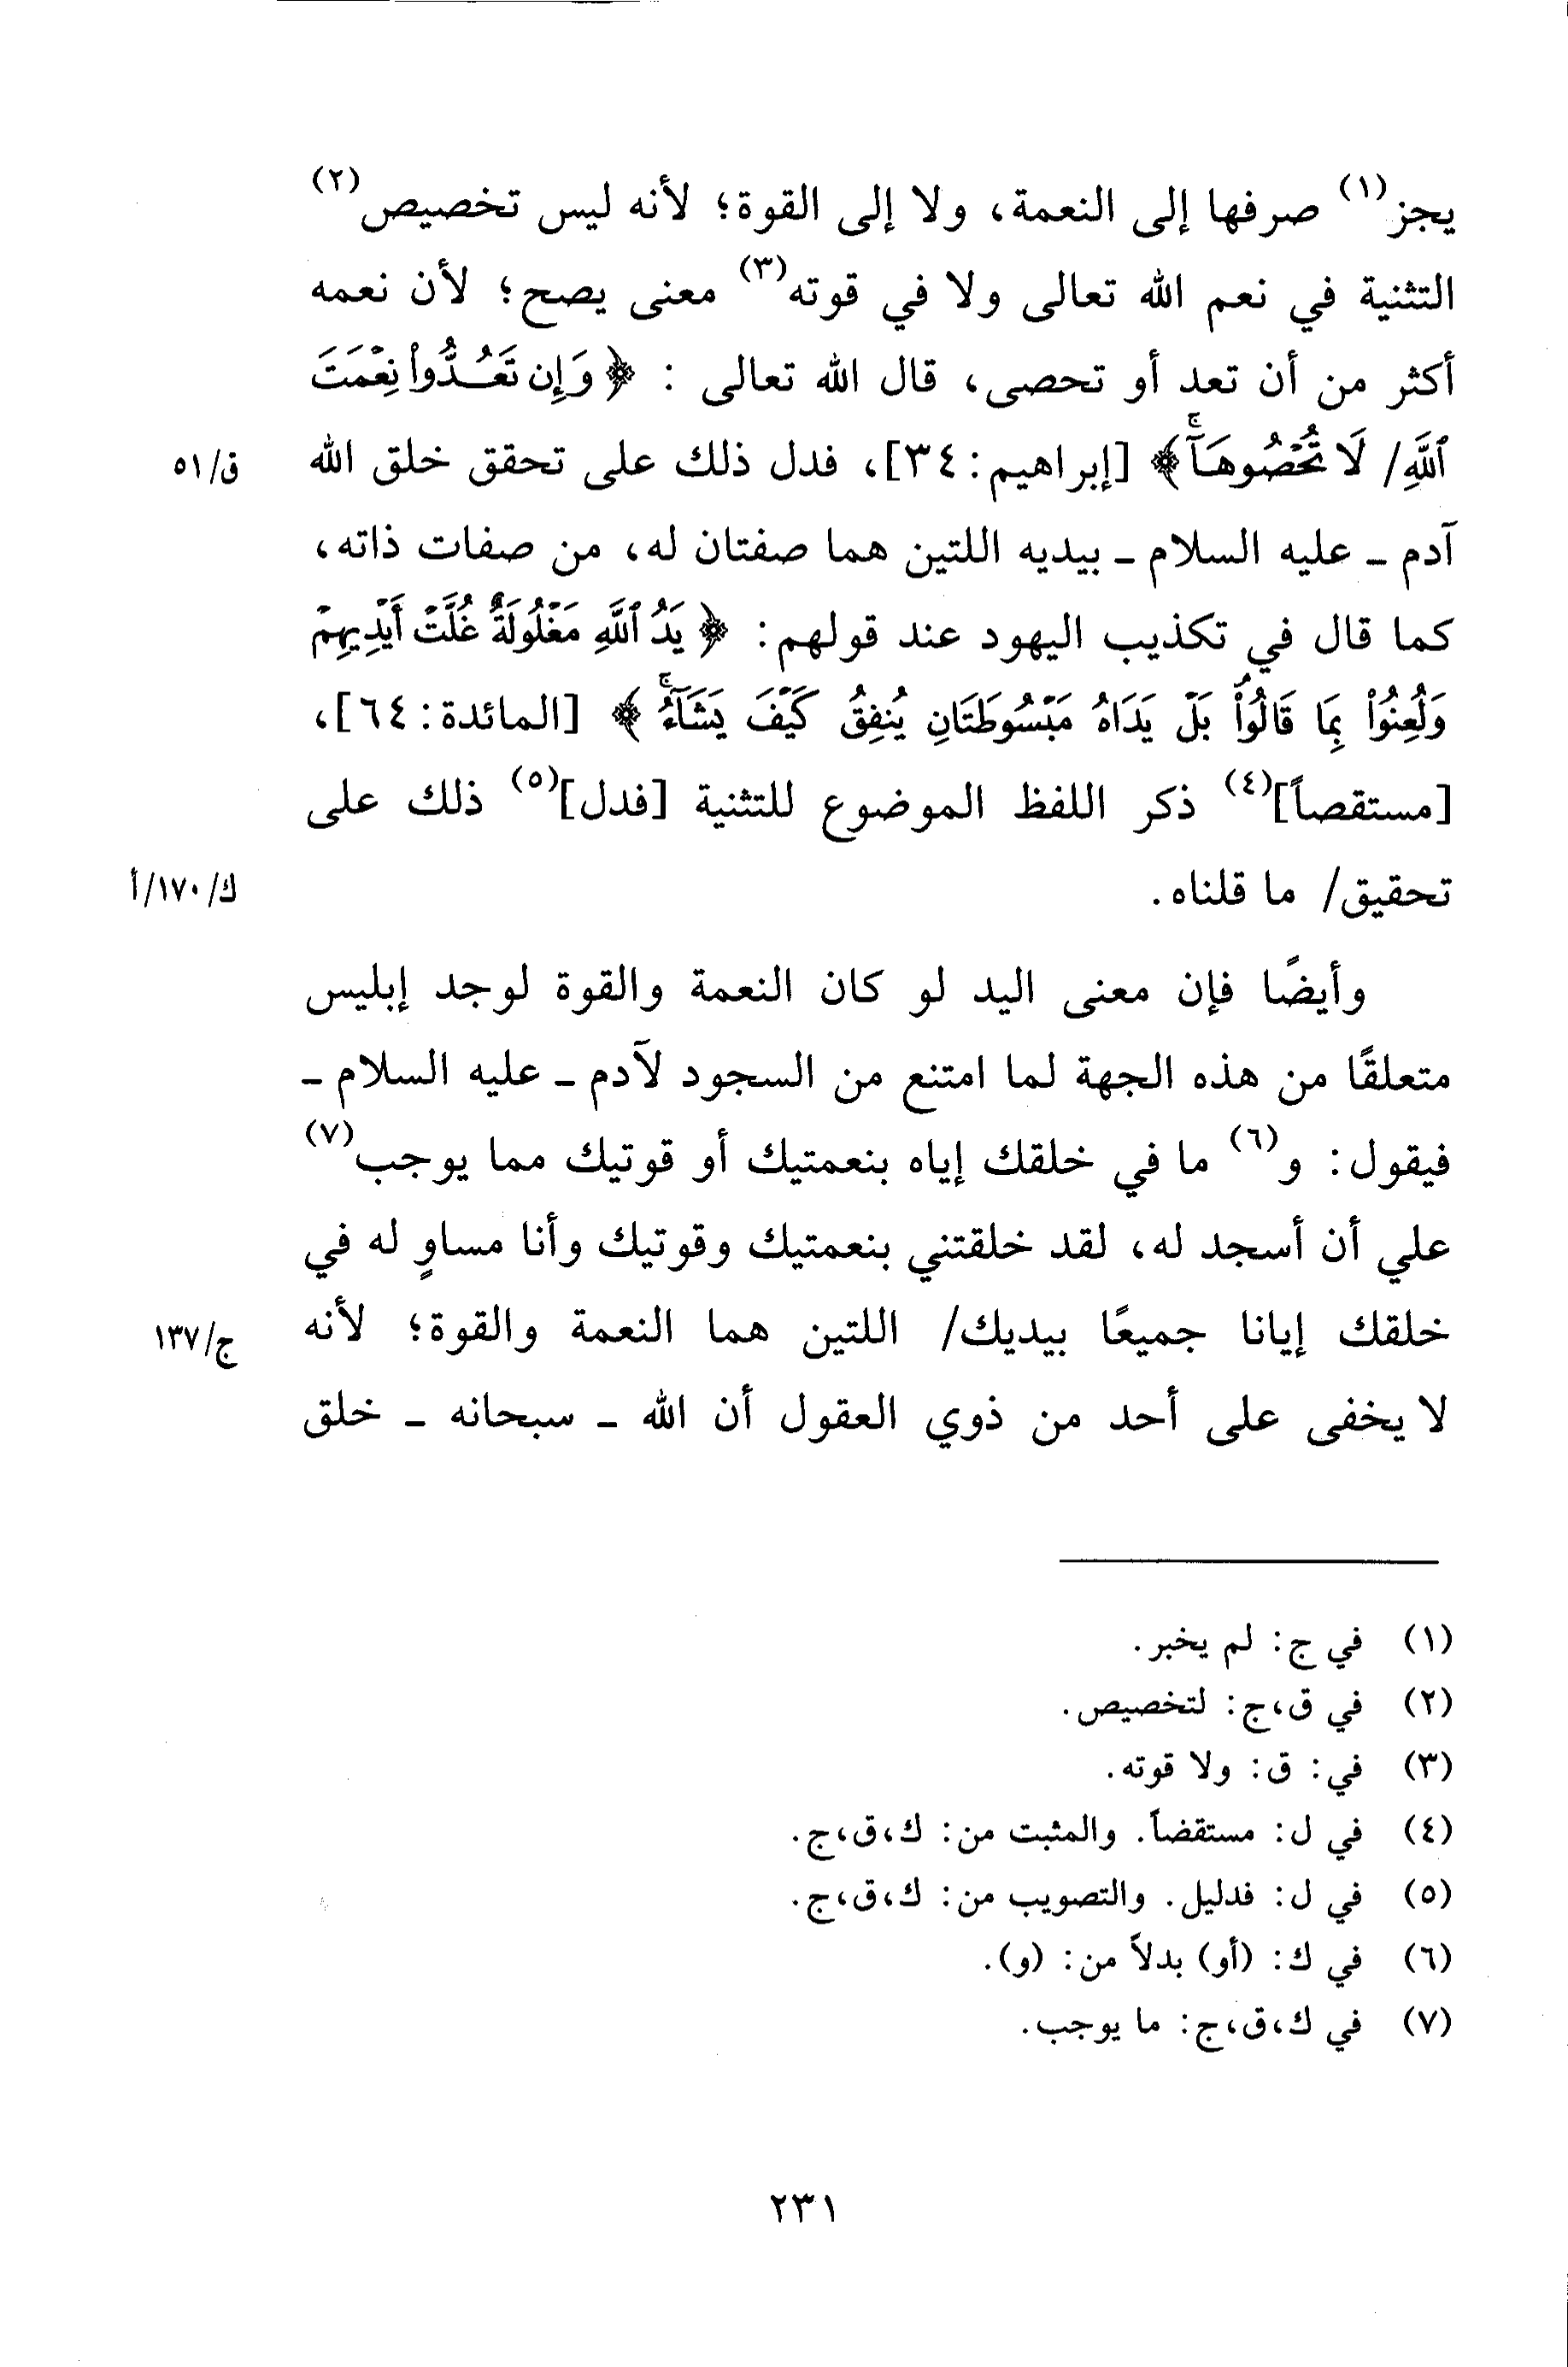 يجز(١) صرفها إلى النعمة، ولا إلى القوة؛ لأنه ليس تخصيص(٢)
التثنية في نعم الله تعالى ولا في قوته(٣) معنى يصح؛ لأن نعمه
أكثر من أن تعد أو تحصى، قال الله تعالى : ﴿ وَإِن تَعُدُّواْ نِعْمَتَ
ٱللَّهِ/ لَا تُحْصُوهَآۚ ﴾ [إبراهيم: ٣٤]، فدل ذلك على تحقق خلق الله ق/٥١
آدم ـ عليه السلام ـ بيديه اللتين هما صفتان له، من صفات ذاته،
كما قال في تكذيب اليهود عند قولهم: ﴿ يَدُ ٱللَّهِ مَغْلُولَةٌۚ غُلَّتْ أَيْدِيهِمْ
وَلُعِنُواْ بِمَا قَالُواْۘ بَلْ يَدَاهُ مَبْسُوطَتَانِ يُنفِقُ كَيْفَ يَشَآءُۚ ﴾ [المائدة: ٦٤]،
[مستقصاً](٤) ذكر اللفظ الموضوع للتثنية [فدل](٥) ذلك على
تحقيق/ ما قلناه. ك/١٧٠/أ
وأيضًا فإن معنى اليد لو كان النعمة والقوة لوجد إبليس
متعلقًا من هذه الجهة لما امتنع من السجود لآدم ـ عليه السلام ـ
فيقول: و(٦) ما في خلقك إياه بنعمتيك أو قوتيك مما يوجب(٧)
علي أن أسجد له، لقد خلقتني بنعمتيك وقوتيك وأنا مساوٍ له في
خلقك إيانا جميعًا بيديك/ اللتين هما النعمة والقوة؛ لأنه ج/١٣٧
لا يخفى على أحد من ذوي العقول أن الله ـ سبحانه ـ خلق
(١) في ج: لم يخبر.
(٢) في ق،ج: لتخصيص.
(٣) في: ق: ولا قوته.
(٤) في ل: مستقضاً. والمثبت من: ك،ق،ج.
(٥) في ل: فدليل. والتصويب من: ك،ق،ج.
(٦) في ك: (أو) بدلاً من: (و).
(٧) في ك،ق،ج: ما يوجب.
٢٣١